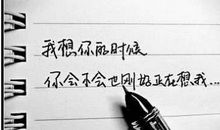 我想你的时候
你会不会也刚好正在想我...